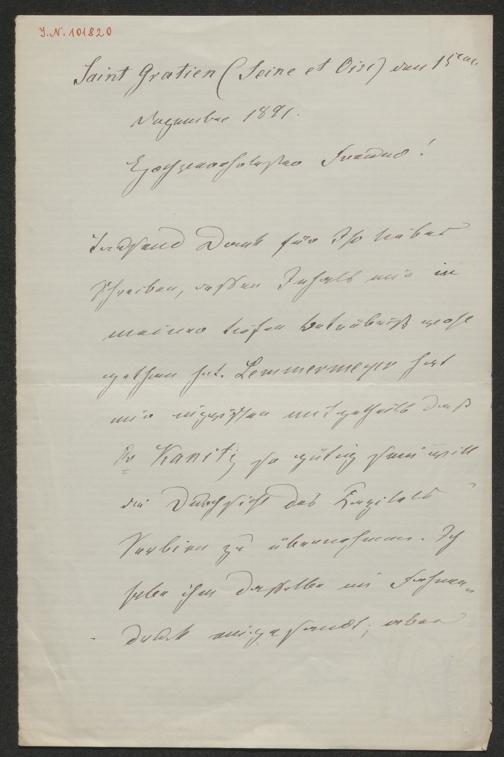 J.N. 101820
Saint Gratien (Seine et Oise) den 15ten
November 1891.
Hochverehrtester Freund!
Tausend Dank für Ihr liebes
Schreiben, dessen Inhalt mir in
meiner tiefen Betrübniß wohl
gethan hat. Lemmermeyer hat
mir inzwischen mitgetheilt daß
Hr Kanitz so gütig sein will
die Durchsicht des Kapitels
Serbien zu übernehmen. Ich
habe ihm dasselbe im Fahnen-
druck eingesandt; aber